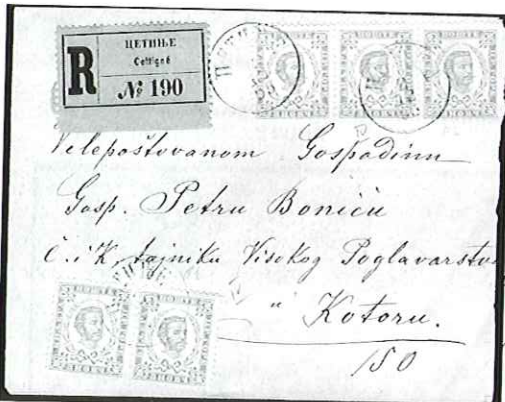 R
ЦЕТИЊЕ
Cettigné
№ 190
Velepoštovanom Gospodinu
Gosp. Petru Boniću
C. i K. tajniku Visokog Poglavarstva
u Kotoru.
150